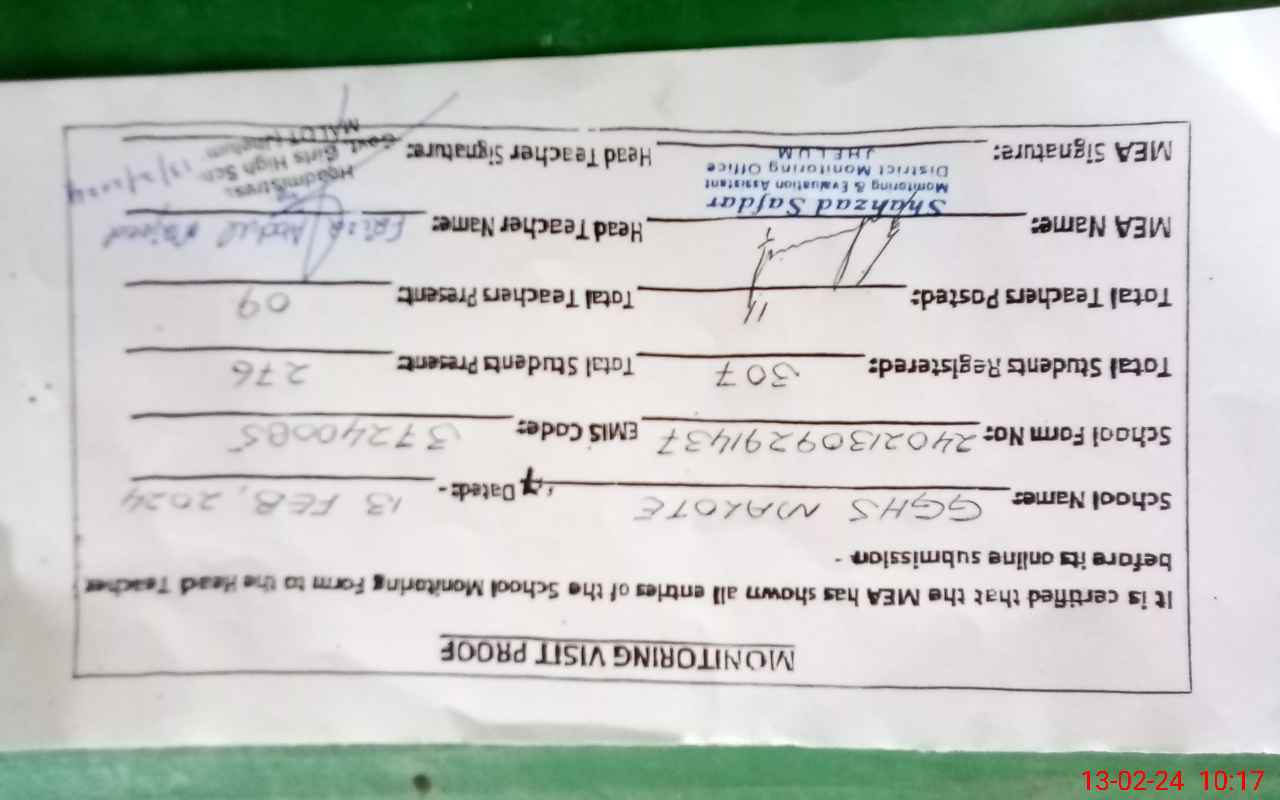 MONITORING VISIT PROOF
It is certified that the MEA has shown all entries of the School Monitoring Form to the Head Teacher
before its online submission -
School Name: GGHS MALOTE Dated: - 13 FEB, 2024
School Form No: 24021309291437 EMIS Code: 37240085
Total Students Registered: 307 Total Students Present: 276
Total Teachers Posted: 11 Total Teachers Present: 09
MEA Name: Head Teacher Name:
Shahzad Safdar
Monitoring & Evaluation Assistant
District Monitoring Office
JHELUM
MEA Signature: Head Teacher Signature:
Headmistress
Govt. Girls High Sch.
MALOT (Jhelum)
13/2/2024
13-02-24 10:17